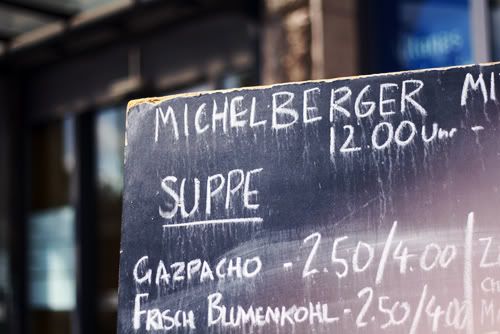 MICHELBERGER MI
12.00 Uhr -
SUPPE
GAZPACHO - 2.50/4.00
FRISCH BLUMENKOHL - 2.50/4.00